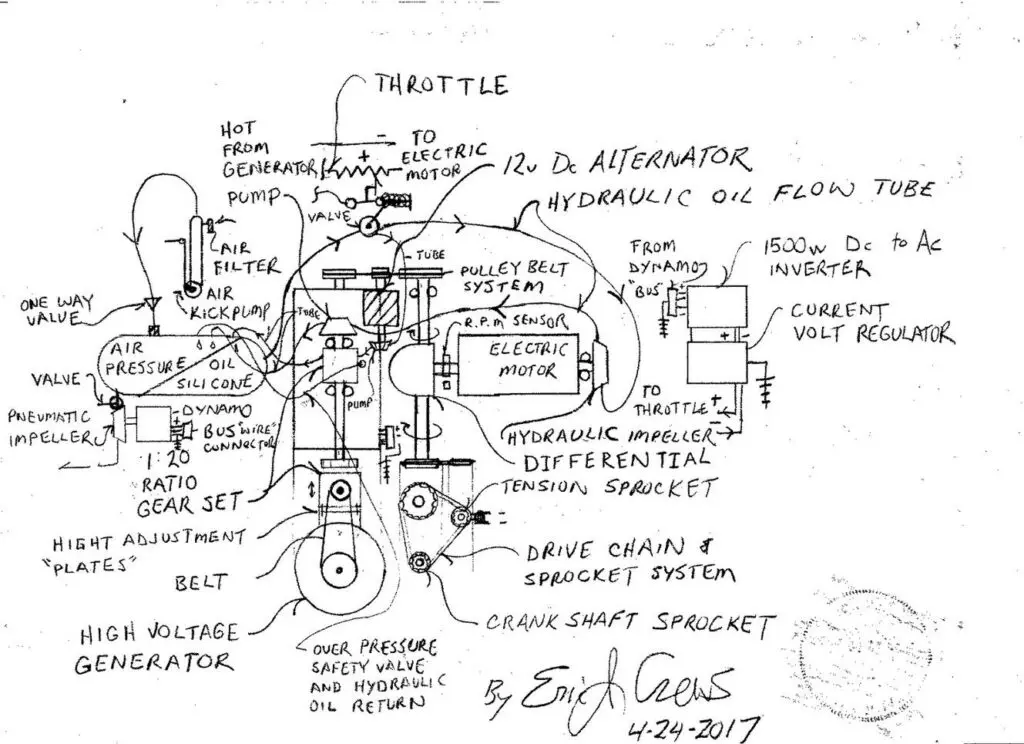 THROTTLE
HOT
FROM
GENERATOR
- TO
+ ELECTRIC
MOTOR
12v Dc ALTERNATOR
PUMP
VALVE
HYDRAULIC OIL FLOW TUBE
AIR
FILTER
AIR
KICKPUMP
ONE WAY
VALVE
TUBE
TUBE
PULLEY BELT
SYSTEM
R.P.M SENSOR
ELECTRIC
MOTOR
FROM
DYNAMO
"BUS"
1500w Dc to Ac
INVERTER
+ -
CURRENT
VOLT REGULATOR
TO
THROTTLE +
-
AIR
PRESSURE
OIL
SILICONE
VALVE
PNEUMATIC
IMPELLER
DYNAMO
BUS "WIRE"
CONNECTOR
1:20
RATIO
GEAR SET
PUMP
HYDRAULIC IMPELLER
DIFFERENTIAL
TENSION SPROCKET
HIGHT ADJUSTMENT
"PLATES"
BELT
DRIVE CHAIN &
SPROCKET SYSTEM
HIGH VOLTAGE
GENERATOR
CRANK SHAFT SPROCKET
OVER PRESSURE
SAFETY VALVE
AND HYDRAULIC
OIL RETURN
By Eric J Crews
4-24-2017